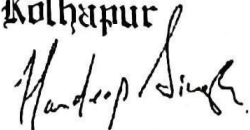 Kolhapur
Handeep Singh